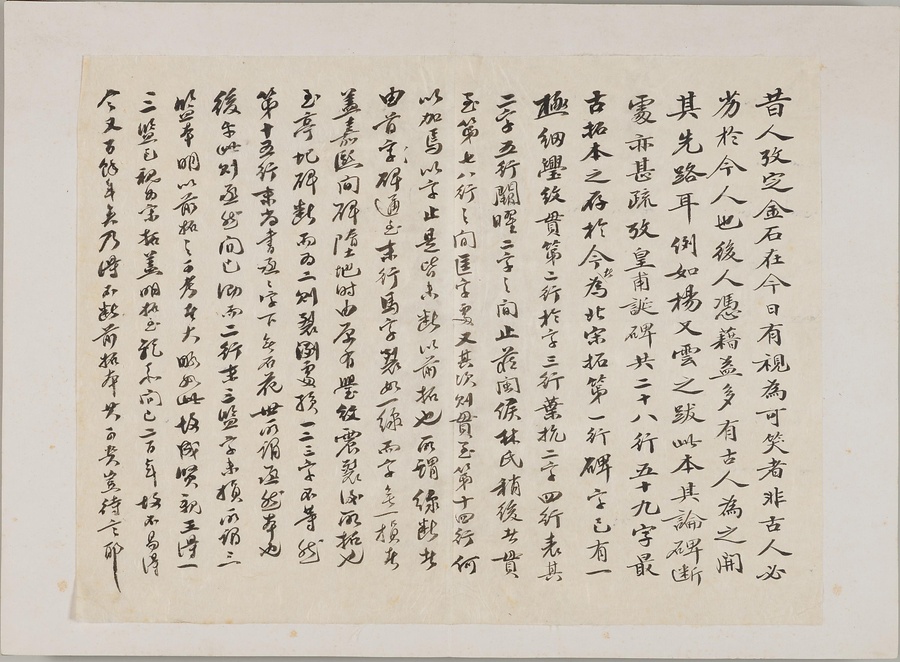 昔人攷定金石在今日有視為可笑者非古人必
劣於今人也後人憑藉益多有古人為之開
其先路耳例如楊又雲之跋此本其論碑斷
處亦甚疏攷皇甫誕碑共二十八行五十九字最
古拓本之存於今者為北宋拓第一行碑字已有一
極細璺紋貫第二行於字三行葉抗二字四行表其
二字五行關曜二字之間止藏閩侯林氏稍後者貫
至第七八行之間匡字處又其次則貫至第十四行何
以加焉以字止是皆未斷以前拓也所謂線斷者
由首字碑通至末行馬字裂如一線而字無一損者
蓋嘉熙間碑墮地時由原有璺紋震裂後所拓也
至亭圮碑斷而為二則裂泐處損一二三字不等然
第十五行末尚書逈之字下無石花世所謂逈然本也
後乎此則逈然間已泐而二行末三監字未損所謂三
監本明以前拓之可考者大略如此故成賢視王得一
三監已視為宋拓蓋明拓至現不問已二百年故不易得
今又百餘年矣乃得不斷前拓本其可貴豈待言耶